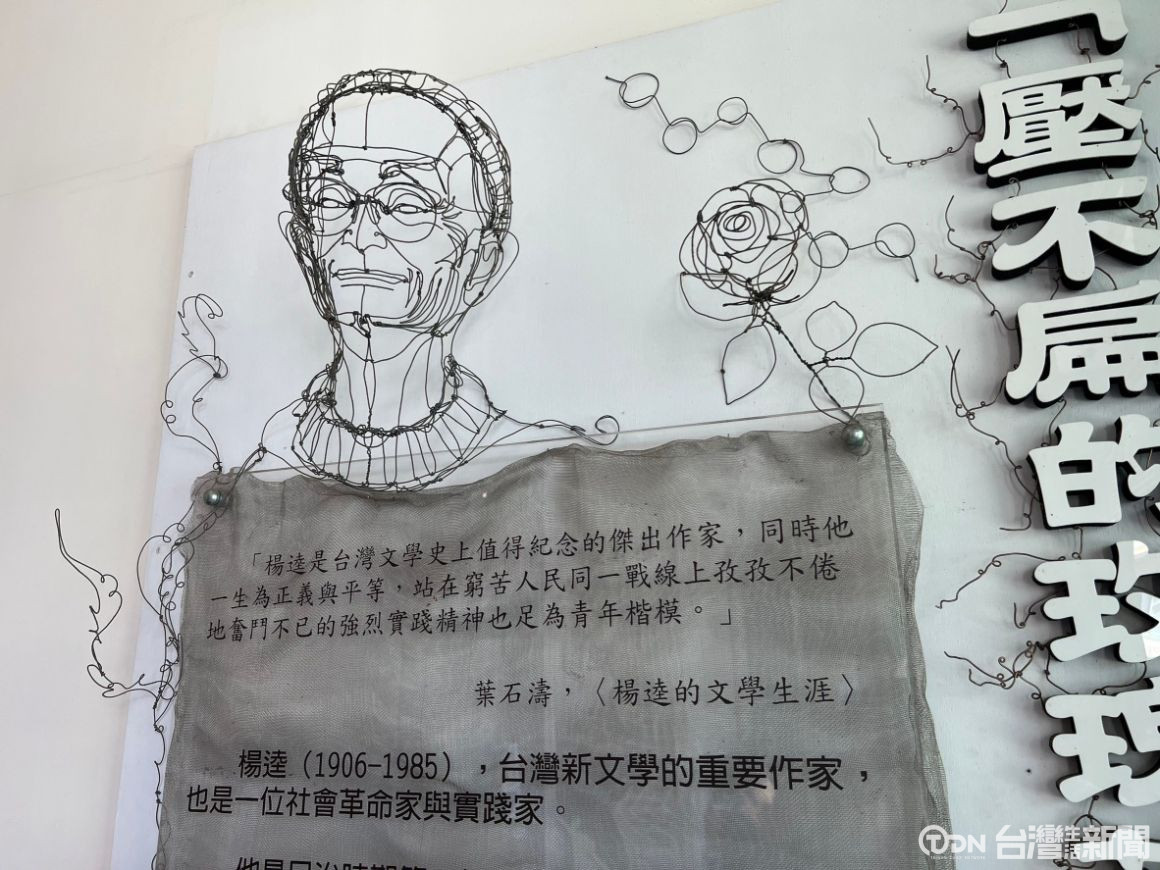 「壓不扁的玫瑰
「楊逵是台灣文學史上值得紀念的傑出作家，同時他
一生為正義與平等，站在窮苦人民同一戰線上孜孜不倦
地奮鬥不已的強烈實踐精神也足為青年楷模。」
葉石濤，〈楊逵的文學生涯〉
楊逵（1906-1985），台灣新文學的重要作家，
也是一位社會革命家與實踐家。
他是日治時期
TDN 台灣 新聞